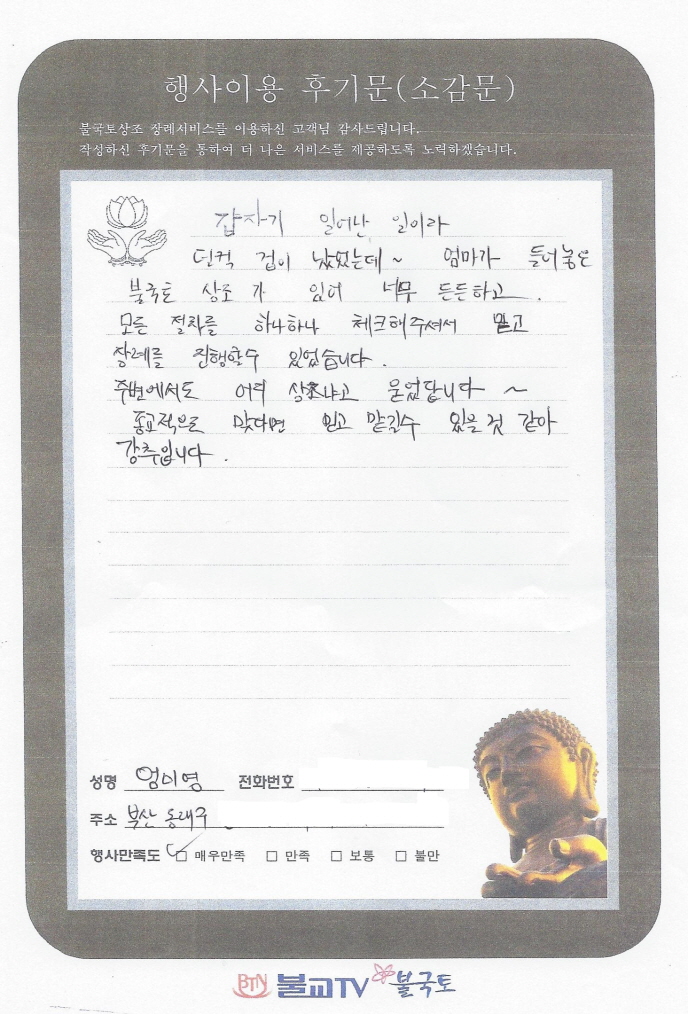 행사이용 후기문(소감문)
불국토상조 장례서비스를 이용하신 고객님 감사드립니다.
작성하신 후기문을 통하여 더 나은 서비스를 제공하도록 노력하겠습니다.
갑자기 일어난 일이라
던컥 겁이 났었는데~ 엄마가 들어놓은
불국토 상조가 있어 너무 든든하고.
모든 절차를 하나하나 체크해주셔서 믿고
장례를 진행할수 있었습니다.
주변에서도 어디 상조냐고 묻었답니다 ~
종교적으로 맞다면 믿고 맡길수 있을 것 같아
강추입니다.
성명 엄미영 전화번호
주소 부산 동래구
행사만족도 ☐ 매우만족 ☐ 만족 ☐ 보통 ☐ 불만
BTN 불교TV 불국토